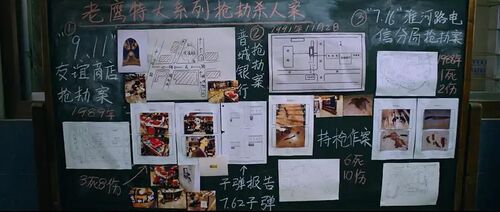 老鹰特大系列抢劫杀人案
①
"9.11"
友谊商店
抢劫案
1989年
3死8伤
②
晋城银行
抢劫案
1991年11月2日
子弹报告
7.62子弹
持枪作案
6死
10伤
③"7.16"淮河路电
信分局抢劫案
1988年
1死
2伤